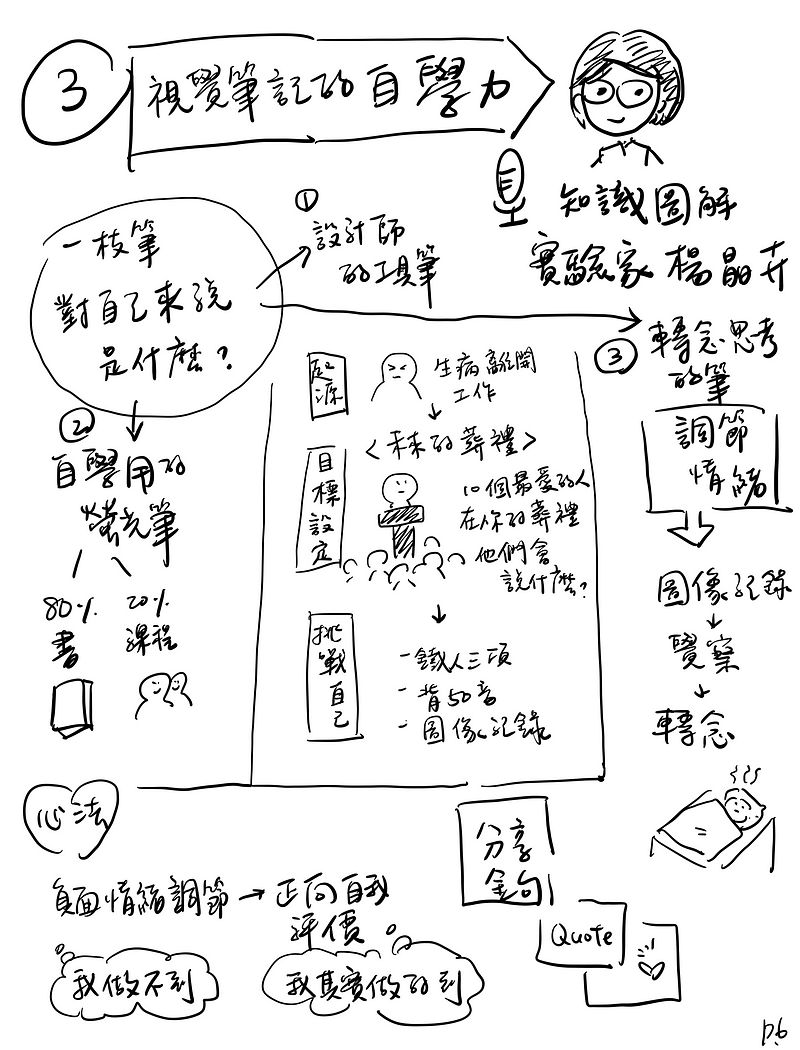 3
視覺筆記的自學力
知識圖解
實驗家 楊晶卉
一枝筆
對自己來說
是什麼?
①
設計師
的工具筆
②
自學用的
螢光筆
80%
書
20%
課程
起源
生病離開
工作
目標設定
<未來的葬禮>
10個最愛的人
在你的葬禮
他們會
說什麼?
挑戰自己
-鐵人三項
-背50音
-圖像記錄
③
轉念思考
的筆
調節
情緒
圖像記錄
覺察
轉念
心法
負面情緒調節→正向自我
評價
我做不到
我其實做的到
分享
金句
Quote
p.6